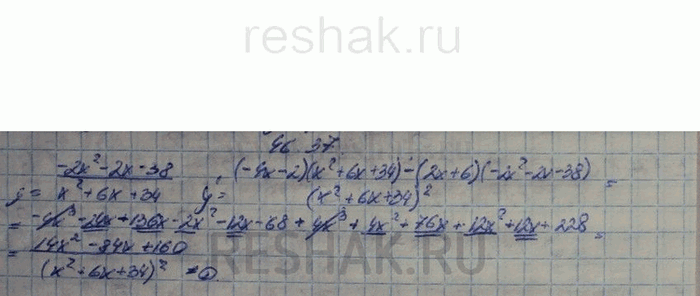 reshak.ru
46 37
y = (-2x²-2x-38)/(x²+6x+34) y' = ((-4x-2)(x²+6x+34)-(2x+6)(-2x²-2x-38))/(x²+6x+34)² =
= -4x³-24x+136x-2x²-12x-68+4x³+4x²+76x+12x²+12x+228 =
= (14x²-84x+160)/(x²+6x+34)² = 0
RESHAK.RU